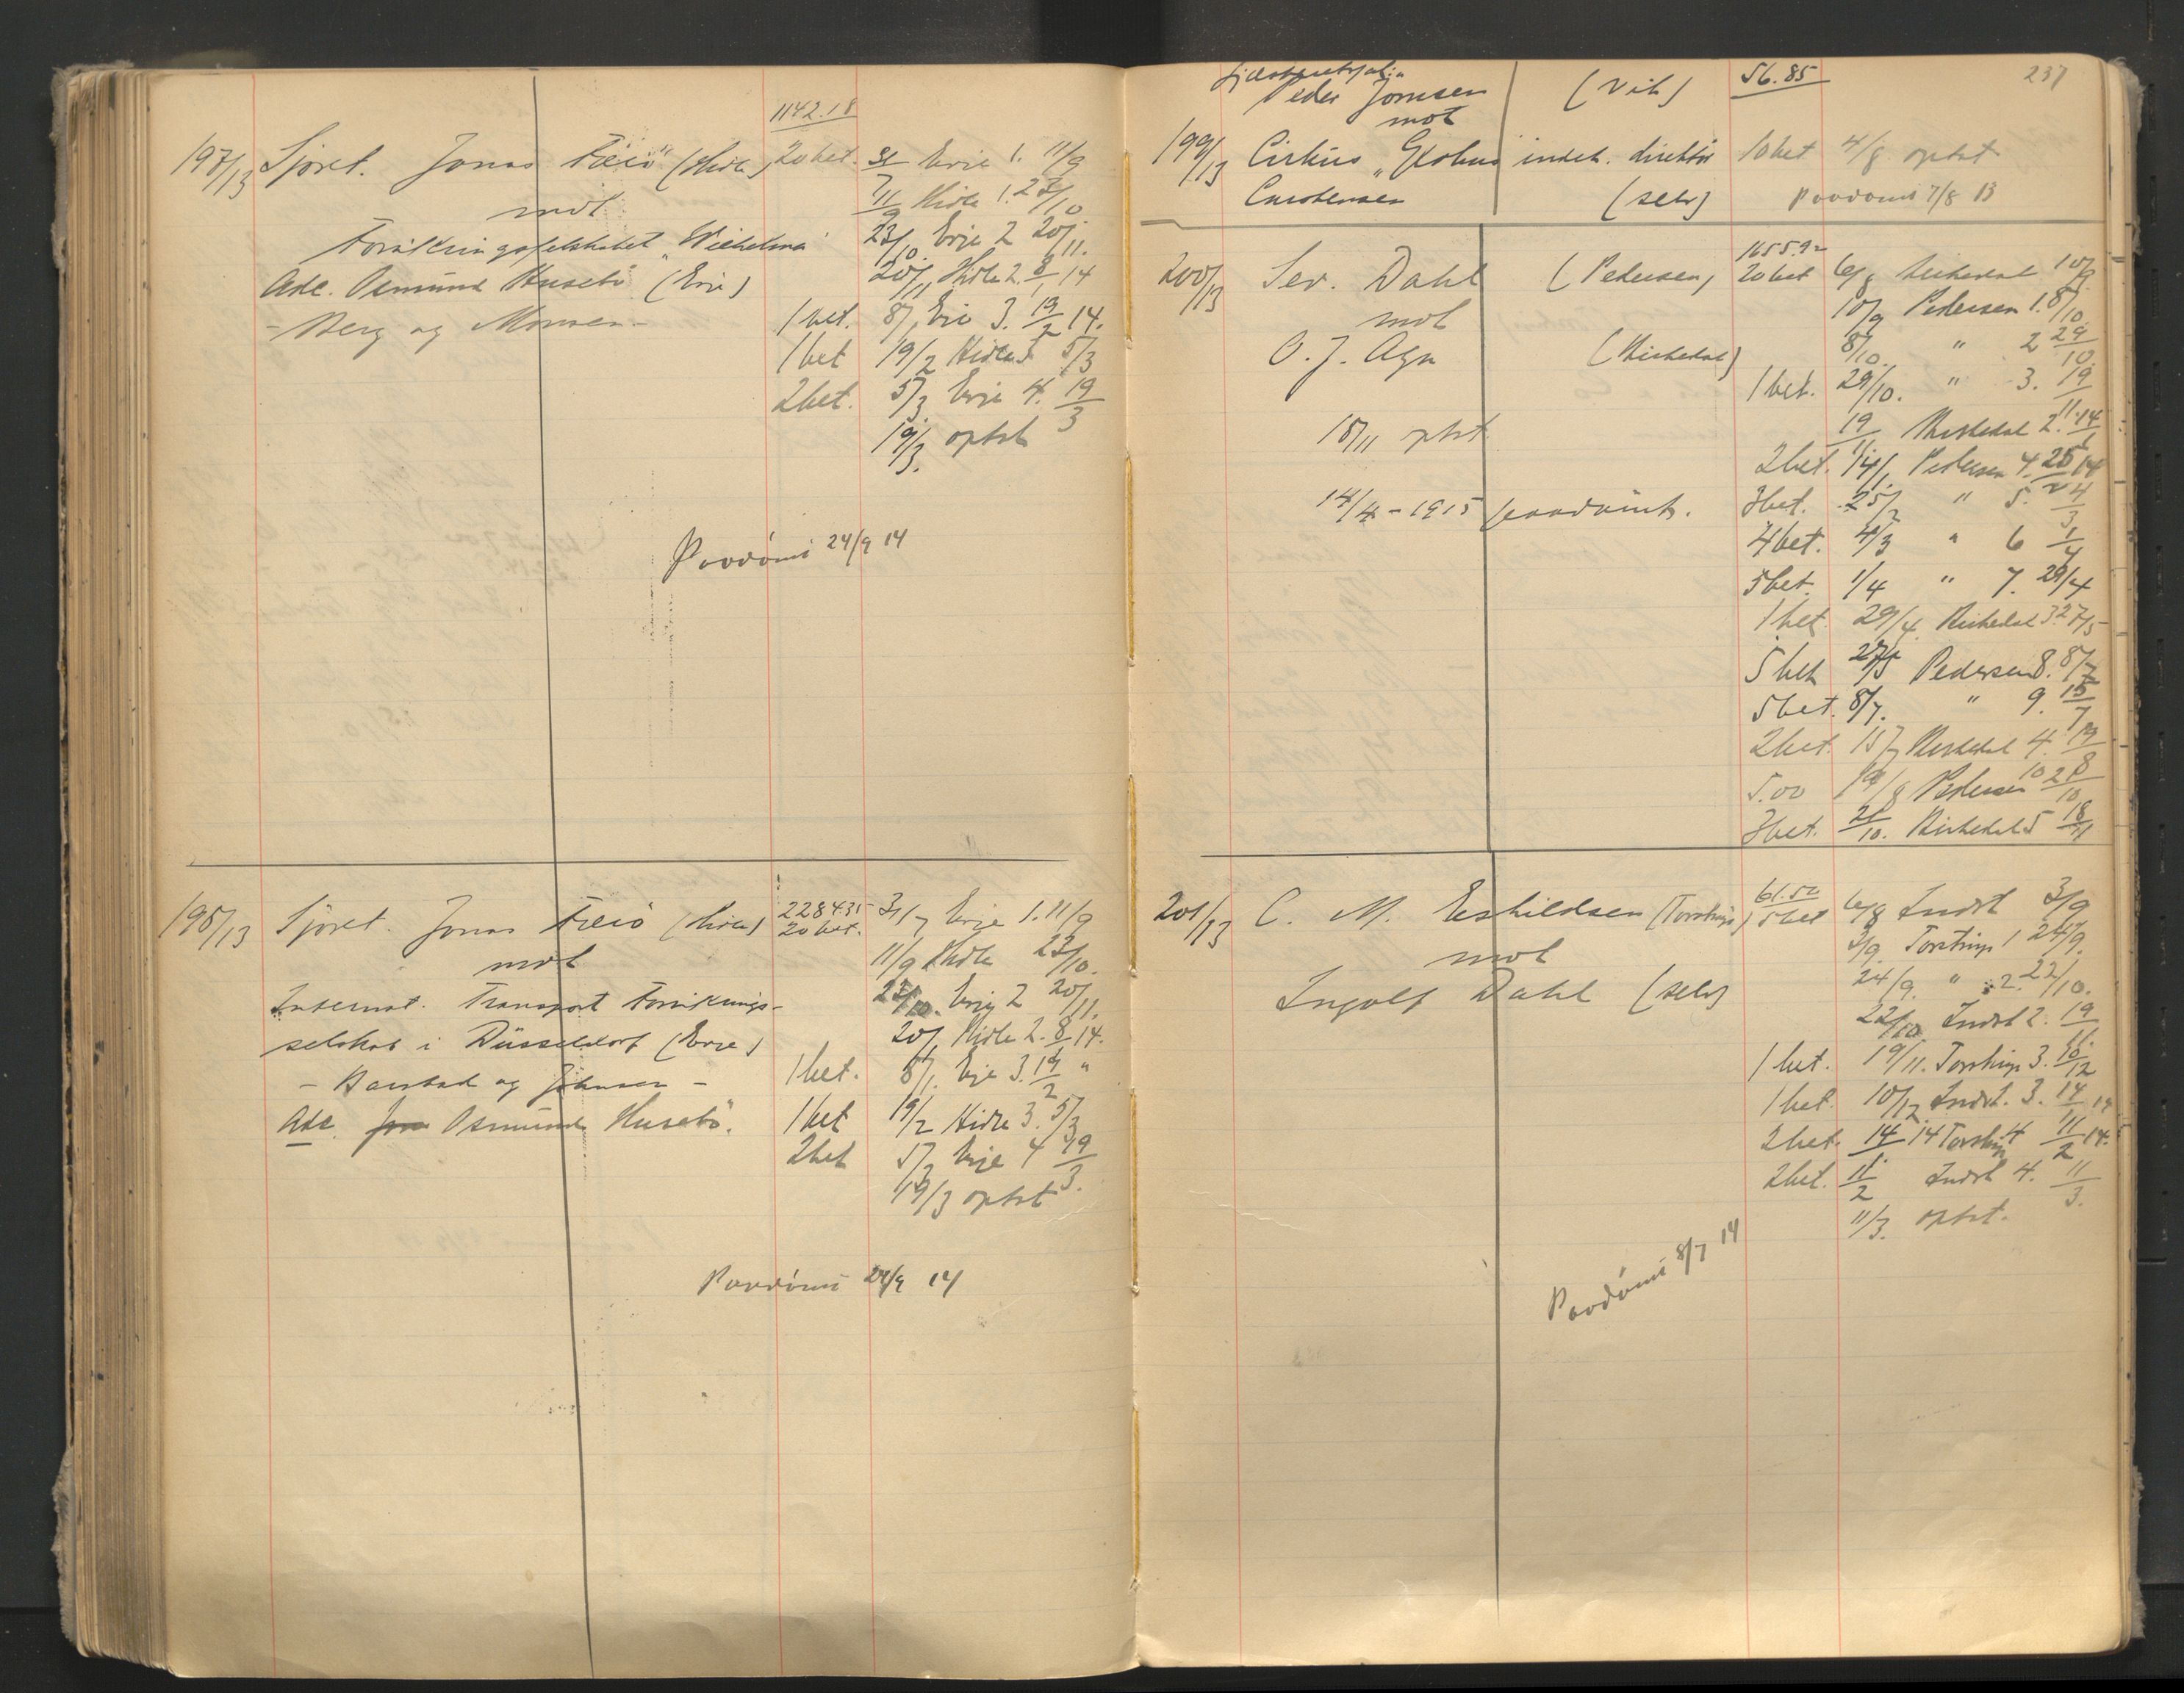 1142.18
197/13 Sjöret. Jonas Fieiö (Hidle) 20 bet. Erie 1. 11/9
mot 11/9 Hidle 1. 23/10
Forsikringsselskabet "Wilhelma" 23/10 Erie 2 20/11.
Adc. Osmund Husebö (Erie) 20/11 Hidle 2. 8/1 14
- Berg og Monsen - 1 bet. 8/1 Erie 3. 19/2 14.
1 bet 19/2 Hidle 3 5/3
2 bet. 5/3 Erie 4. 19/3
19/3. optat
Paadömt 24/9 14
198/13 Sjöret. Jonas Fieiö (Hidle) 2284.35 31/7 Erie 1. 11/9
20 bet.
mot 11/9 Hidle 23/10.
Internat. Transport Forsikrings- 23/10. Erie 2 20/11.
selskab i Düsseldorf (Erie) 20/11 Hidle 2. 8/1 14.
- Harstad og Johnsen - 1 bet. 8/1. Erie 3. 19/2 "
Adc. Osmund Husebö. 1 bet 19/2 Hidle 3. 5/3
2 bet 5/3 Erie 4 19/3.
19/3 optat
Paadömt 24/9 14
237
Peder Jonsen 56.85
mot
199/13 Cirkus "Globus" indeh. direktör 10 bet 4/8 optat
Carstensen (selv) Paadömt 7/8 13
200/13 Sev. Dahl (Pedersen) 1655.92 6/8 Birkedal 10/9
20 bet
mot 10/9 Pedersen 1. 8/10
O. J. Aga (Birkedal) 8/10. " 2 29/10.
1 bet. 29/10. " 3. 19/11
18/11 optat 19/11 Birkedal 2. 14/1 14
2 bet. 14/1. Pedersen 4. 25/2 14
14/4 - 1915 paadömt. 3 bet. 25/2 " 5. 4/3
4 bet. 4/3 " 6 1/4
5 bet. 1/4 " 7. 29/4
1 bet. 29/4. Birkedal 3. 27/5
5 bet 27/5 Pedersen 8. 8/7
5 bet. 8/7. " 9. 15/7
2 bet. 15/7 Birkedal 4. 19/8
5.00 19/8 Pedersen 10 21/10
3 bet. 21/10. Birkedal 5 18/11
201/13 C. M. Eskildsen (Torstrup) 61.50 6/8 Indst 3/9
5 bet
mot 3/9. Torstrup 1 24/9.
Ingolf Dahl (selv) 24/9. " 2. 22/10.
22/10 Indst 2. 19/11.
1 bet. 19/11. Torstrup 3. 10/12
1 bet. 10/12 Indst. 3. 14/1 14
2 bet. 14/1. 14 Torstrup 4 11/2 14.
2 bet. 11/2 Indst 4. 11/3.
11/3. optat.
Paadömt 8/7 14